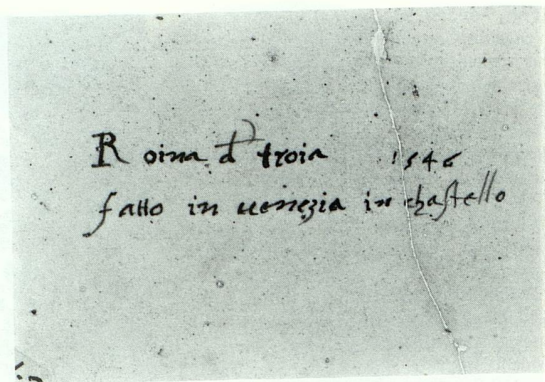 Roina d troia 1546
fatto in uenezia in chastello